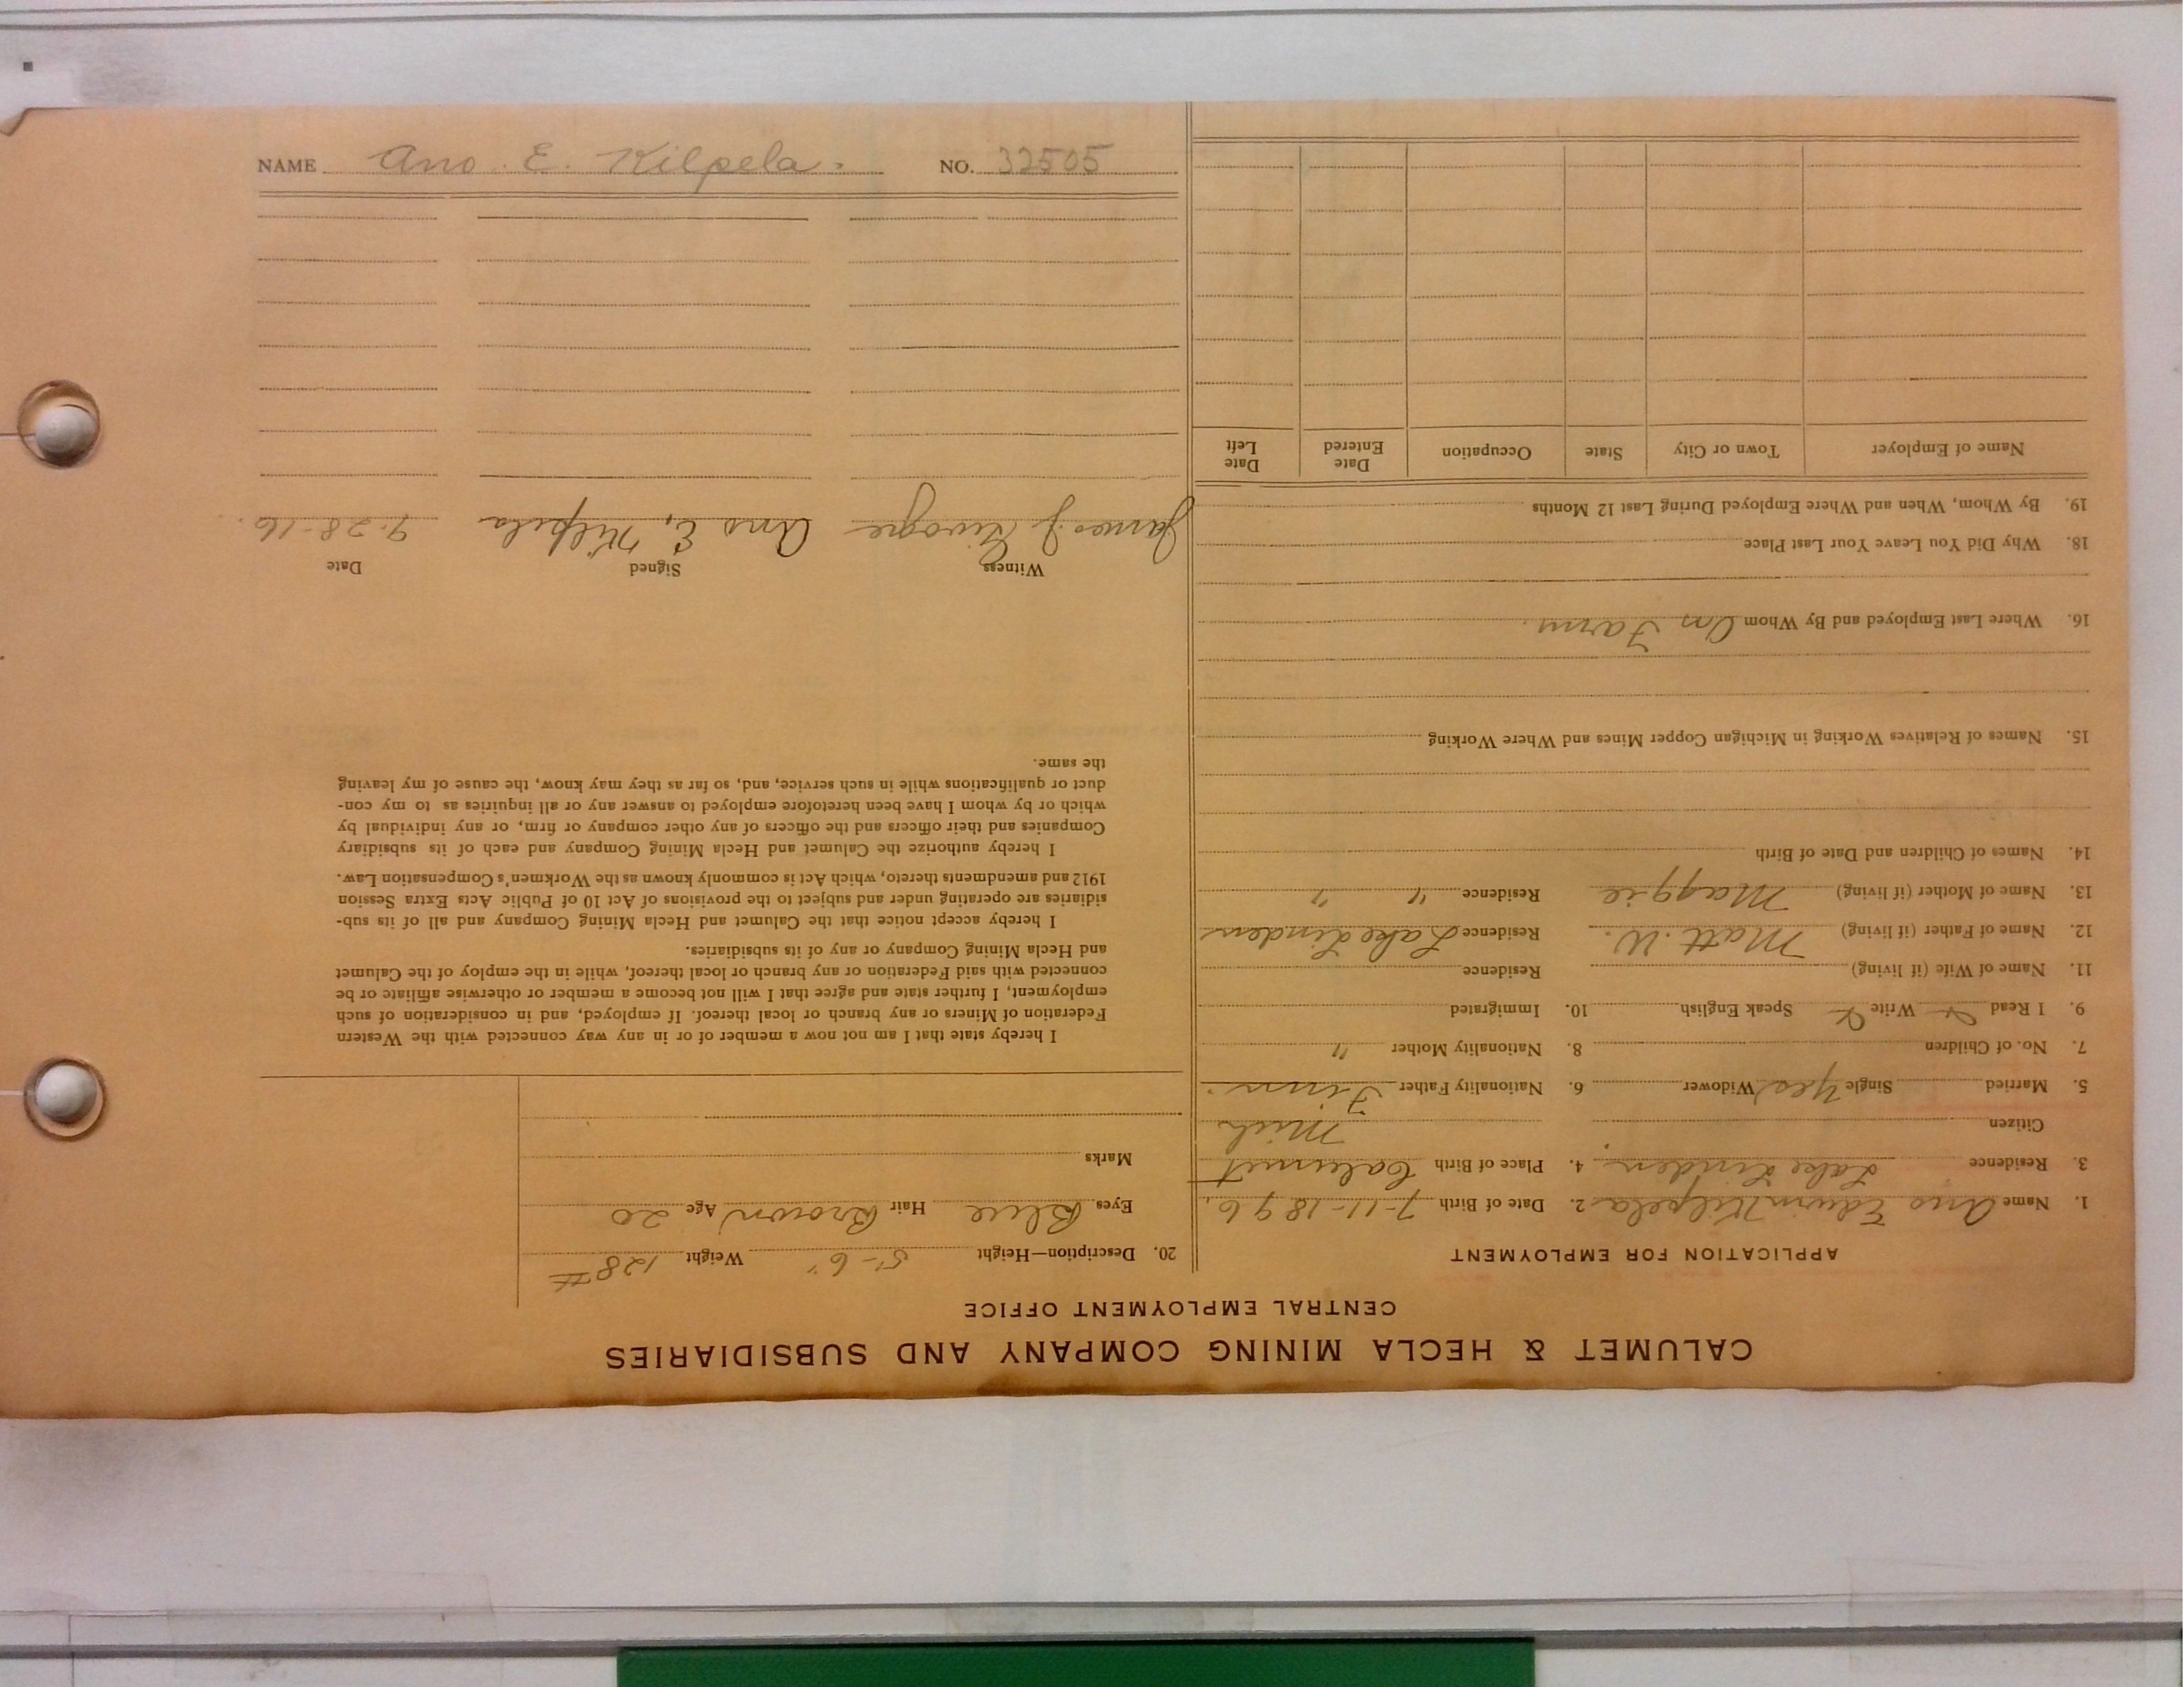 CALUMET & HECLA MINING COMPANY AND SUBSIDIARIES
CENTRAL EMPLOYMENT OFFICE
APPLICATION FOR EMPLOYMENT
1. Name Ano Edwin Kilpela 2. Date of Birth 7-11-1896.
3. Residence Lake Linden 4. Place of Birth Calumet
Citizen Mich
5. Married Single Yes Widower 6. Nationality Father Finn
7. No. of Children 8. Nationality Mother "
9. I Read Write Speak English 10. Immigrated
11. Name of Wife (if living) Residence
12. Name of Father (if living) Matt. W. Residence Lake Linden
13. Name of Mother (if living) Maggie Residence " "
14. Names of Children and Date of Birth
15. Names of Relatives Working in Michigan Copper Mines and Where Working
16. Where Last Employed and By Whom On Farm.
18. Why Did You Leave Your Last Place
19. By Whom, When and Where Employed During Last 12 Months
Name of Employer Town or City State Occupation Date Entered Date Left
20. Description—Height 5'-6" Weight 128#
Eyes Blue Hair Brown Age 20
Marks
I hereby state that I am not now a member of or in any way connected with the Western
Federation of Miners or any branch or local thereof. If employed, and in consideration of such
employment, I further state and agree that I will not become a member or otherwise affiliate or be
connected with said Federation or any branch or local thereof, while in the employ of the Calumet
and Hecla Mining Company or any of its subsidiaries.
I hereby accept notice that the Calumet and Hecla Mining Company and all of its sub-
sidiaries are operating under and subject to the provisions of Act 10 of Public Acts Extra Session
1912 and amendments thereto, which Act is commonly known as the Workmen's Compensation Law.
I hereby authorize the Calumet and Hecla Mining Company and each of its subsidiary
Companies and their officers and the officers of any other company or firm, or any individual by
which or by whom I have been heretofore employed to answer any or all inquiries as to my con-
duct or qualifications while in such service, and, so far as they may know, the cause of my leaving
the same.
Witness Signed Date
James J. Ano E, Kilpela 9-28-16
NAME Ano. E. Kilpela. NO. 32505